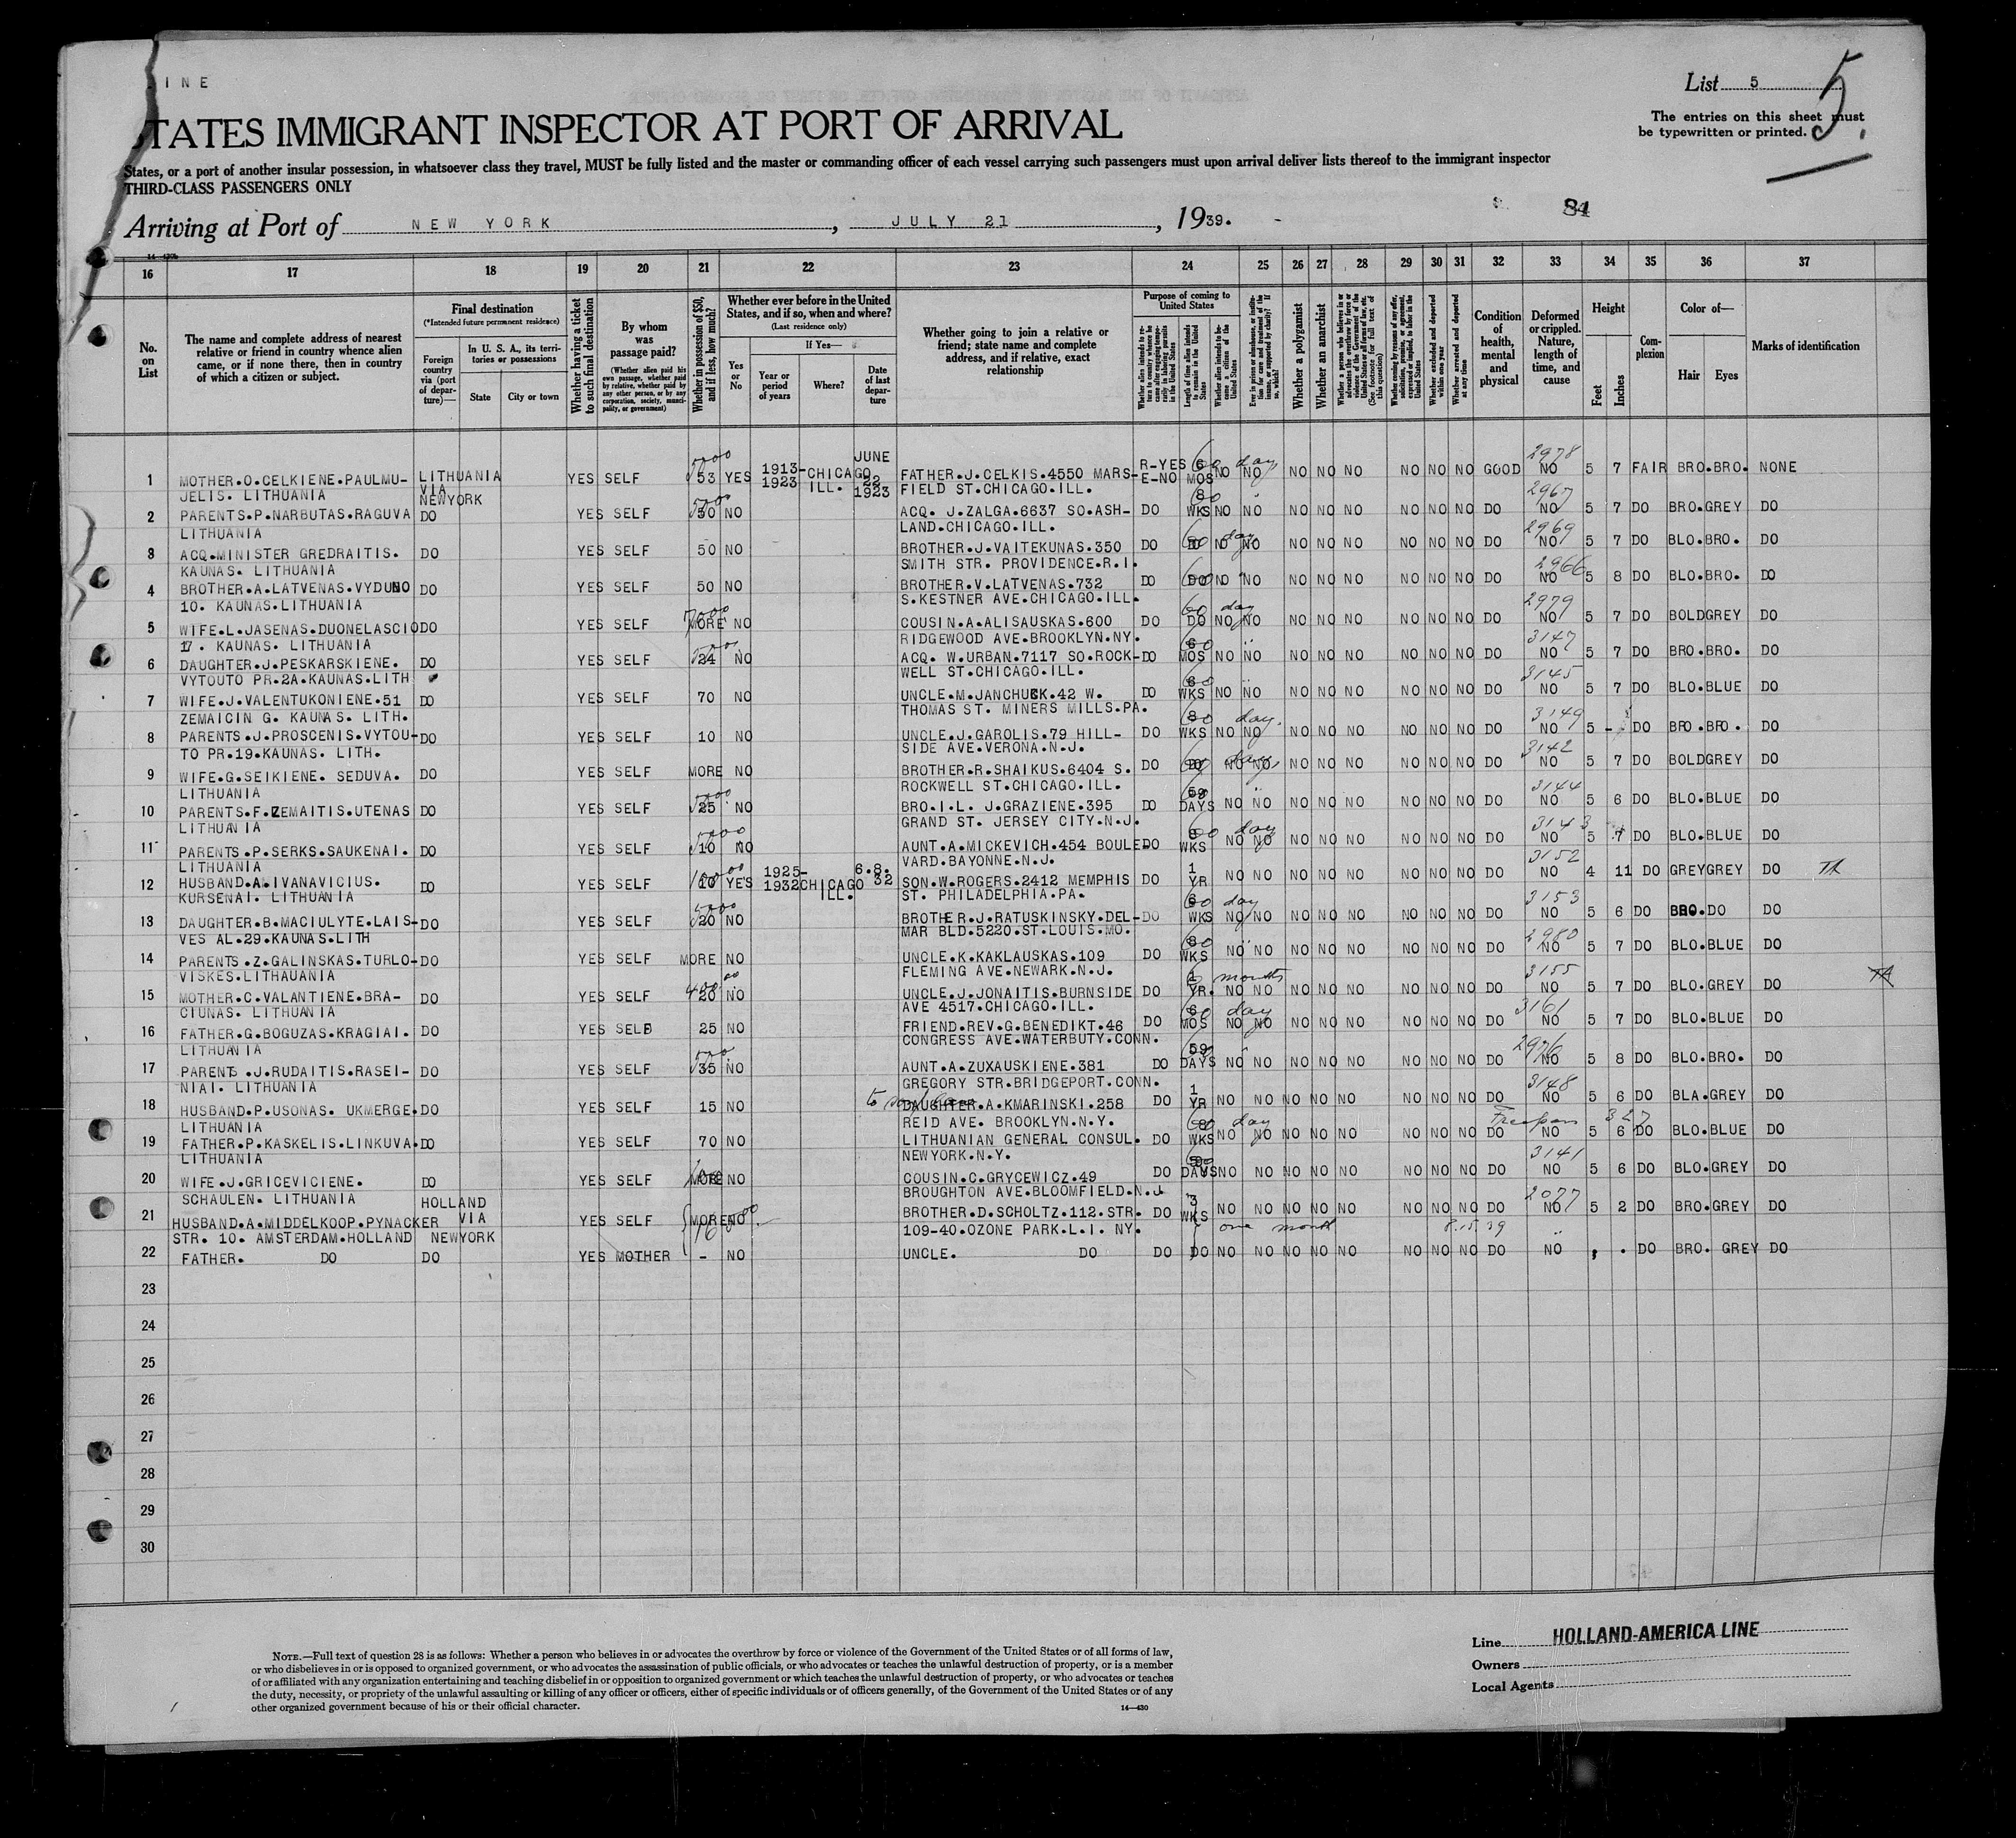 INE
List 5
5.
The entries on this sheet must
be typewritten or printed.
TATES IMMIGRANT INSPECTOR AT PORT OF ARRIVAL
States, or a port of another insular possession, in whatsoever class they travel, MUST be fully listed and the master or commanding officer of each vessel carrying such passengers must upon arrival deliver lists thereof to the immigrant inspector
THIRD-CLASS PASSENGERS ONLY
Arriving at Port of NEW YORK, JULY 21, 1939.
84
16 17 18 19 20 21 22 23 24 25 26 27 28 29 30 31 32 33 34 35 36 37
No. on List
The name and complete address of nearest relative or friend in country whence alien came, or if none there, then in country of which a citizen or subject.
Final destination
(*Intended future permanent residence)
Foreign country via (port of departure)—
In U. S. A., its territories or possessions
State
City or town
Whether having a ticket to such final destination
By whom was passage paid?
(Whether alien paid his own passage, whether paid by relative, whether paid by any other person, or by any corporation, society, municipality, or government)
Whether in possession of $50, and if less, how much?
Whether ever before in the United States, and if so, when and where?
(Last residence only)
Yes or No
If Yes—
Year or period of years
Where?
Date of last departure
Whether going to join a relative or friend; state name and complete address, and if relative, exact relationship
Purpose of coming to United States
Whether alien intends to return to country whence he came after engaging temporarily in laboring pursuits in the United States
Length of time alien intends to remain in the United States
Whether alien intends to become a citizen of the United States
Ever in prison or almshouse, or institution for care and treatment of the insane, or supported by charity? If so, which?
Whether a polygamist
Whether an anarchist
Whether a person who believes in or advocates the overthrow by force or violence of the Government of the United States or all forms of law, etc. (See footnote for full text of this question)
Whether coming by reasons of any offer, solicitation, promise, or agreement, expressed or implied, to labor in the United States
Whether excluded and deported within one year
Whether arrested and deported at any time
Condition of health, mental and physical
Deformed or crippled. Nature, length of time, and cause
Height
Feet
Inches
Complexion
Color of—
Hair
Eyes
Marks of identification
1 MOTHER.O.CELKIENE.PAULMU- LITHUANIA YES SELF 53 YES 1913- CHICAGO JUNE FATHER.J.CELKIS.4550 MARS- R-YES 6 NO NO NO NO NO NO NO NO GOOD NO 5 7 FAIR BRO.BRO. NONE
JELIS. LITHUANIA VIA NEWYORK 1923 ILL. 22 1923 FIELD ST.CHICAGO.ILL. E-NO MOS 60 day 2978
2 PARENTS.P.NARBUTAS.RAGUVA DO YES SELF 50 NO ACQ. J.ZALGA.6637 SO.ASH- DO 8 WKS NO NO NO NO NO NO NO NO DO NO 5 7 DO BRO.GREY DO
LITHUANIA LAND.CHICAGO.ILL. 2967
3 ACQ.MINISTER GREDRAITIS. DO YES SELF 50 NO BROTHER.J.VAITEKUNAS.350 DO DO NO NO NO NO NO NO NO NO DO NO 5 7 DO BLO.BRO. DO
KAUNAS. LITHUANIA SMITH STR. PROVIDENCE.R.I. 60 day 2969
4 BROTHER.A.LATVENAS.VYDUNO DO YES SELF 50 NO BROTHER.V.LATVENAS.732 DO DO NO NO NO NO NO NO NO NO DO NO 5 8 DO BLO.BRO. DO
10. KAUNAS.LITHUANIA S.KESTNER AVE.CHICAGO.ILL. 2966
5 WIFE.L.JASENAS.DUONELASCIO DO YES SELF MORE NO COUSIN.A.ALISAUSKAS.600 DO DO NO NO NO NO NO NO NO NO DO NO 5 7 DO BOLD GREY DO
17. KAUNAS. LITHUANIA RIDGEWOOD AVE.BROOKLYN.NY. 60 day 2979
6 DAUGHTER.J.PESKARSKIENE. DO YES SELF 24 NO ACQ. W.URBAN.7117 SO.ROCK- DO 6 MOS NO NO NO NO NO NO NO NO DO NO 5 7 DO BRO.BRO. DO
VYTOUTO PR.2A.KAUNAS.LITH WELL ST.CHICAGO.ILL. 3147
7 WIFE.J.VALENTUKONIENE.51 DO YES SELF 70 NO UNCLE.M.JANCHUCK.42 W. DO 6 WKS NO NO NO NO NO NO NO NO DO NO 5 7 DO BLO.BLUE DO
ZEMAICIN G. KAUNAS. LITH. THOMAS ST. MINERS MILLS.PA. 3145
8 PARENTS.J.PROSCENIS.VYTOU- DO YES SELF 10 NO UNCLE.J.GAROLIS.79 HILL- DO 8 WKS NO NO NO NO NO NO NO NO DO NO 5 - DO BRO.BRO. DO
TO PR.19.KAUNAS. LITH. SIDE AVE.VERONA.N.J. 60 day. 3149
9 WIFE.G.SEIKIENE. SEDUVA. DO YES SELF MORE NO BROTHER.R.SHAIKUS.6404 S. DO NO NO NO NO NO NO NO NO DO NO 5 7 DO BOLD GREY DO
LITHUANIA ROCKWELL ST.CHICAGO.ILL. 3142
10 PARENTS.F.ZEMAITIS.UTENAS DO YES SELF 25 NO BRO.I.L. J.GRAZIENE.395 DO 59 DAYS NO NO NO NO NO NO NO NO DO NO 5 6 DO BLO.BLUE DO
LITHUANIA GRAND ST. JERSEY CITY.N.J. 3144
11 PARENTS.P.SERKS.SAUKENAI. DO YES SELF 10 NO AUNT.A.MICKEVICH.454 BOULE DO 8 WKS NO NO NO NO NO NO NO NO DO NO 5 7 DO BLO.BLUE DO
LITHUANIA VARD.BAYONNE.N.J. 60 day 3143
12 HUSBAND.A.IVANAVICIUS. DO YES SELF 10 YES 1925- CHICAGO 6.8. SON.W.ROGERS.2412 MEMPHIS DO 1 YR NO NO NO NO NO NO NO NO DO NO 4 11 DO GREY GREY DO
KURSENAI. LITHUANIA 1932 ILL. 32 ST. PHILADELPHIA.PA. 3152
13 DAUGHTER.B.MACIULYTE.LAIS- DO YES SELF 20 NO BROTHER.J.RATUSKINSKY.DEL- DO 6 WKS NO NO NO NO NO NO NO NO DO NO 5 6 DO BRO.DO DO
VES AL.29.KAUNAS.LITH MAR BLD.5220.ST.LOUIS.MO. 60 day 3153
14 PARENTS.Z.GALINSKAS.TURLO- DO YES SELF MORE NO UNCLE.K.KAKLAUSKAS.109 DO 8 WKS NO NO NO NO NO NO NO NO DO NO 5 7 DO BLO.BLUE DO
VISKES.LITHAUANIA FLEMING AVE.NEWARK.N.J. 2980
15 MOTHER.C.VALANTIENE.BRA- DO YES SELF 20 NO UNCLE.J.JONAITIS.BURNSIDE DO 1 YR. NO NO NO NO NO NO NO NO DO NO 5 7 DO BLO.GREY DO
CIUNAS. LITHUANIA AVE 4517.CHICAGO.ILL. 6 months 3155
16 FATHER.G.BOGUZAS.KRAGIAI. DO YES SELB 25 NO FRIEND.REV.G.BENEDIKT.46 DO 6 MOS NO NO NO NO NO NO NO NO DO NO 5 7 DO BLO.BLUE DO
LITHUANIA CONGRESS AVE.WATERBUTY.CONN. 60 day 3161
17 PARENTS.J.RUDAITIS.RASEI- DO YES SELF 35 NO AUNT.A.ZUXAUSKIENE.381 DO 59 DAYS NO NO NO NO NO NO NO NO DO NO 5 8 DO BLO.BRO. DO
NIAI. LITHUANIA GREGORY STR.BRIDGEPORT.CONN. 2976
18 HUSBAND.P.USONAS. UKMERGE. DO YES SELF 15 NO DAUGHTER.A.KMARINSKI.258 DO 1 YR NO NO NO NO NO NO NO NO DO NO 5 6 DO BLA.GREY DO
LITHUANIA REID AVE. BROOKLYN.N.Y. 3148
19 FATHER.P.KASKELIS.LINKUVA. DO YES SELF 70 NO LITHUANIAN GENERAL CONSUL. DO 8 WKS NO NO NO NO NO NO NO NO DO NO 5 6 DO BLO.BLUE DO
LITHUANIA NEWYORK.N.Y. 60 day 327
20 WIFE.J.GRICEVICIENE. DO YES SELF MORE NO COUSIN.C.GRYCEWICZ.49 DO DAYS NO NO NO NO NO NO NO NO DO NO 5 6 DO BLO.GREY DO
SCHAULEN. LITHUANIA BROUGHTON AVE.BLOOMFIELD.N.J 3141
21 HUSBAND.A.MIDDELKOOP.PYNACKER HOLLAND VIA YES SELF MORE NO BROTHER.D.SCHOLTZ.112.STR. DO 3 WKS NO NO NO NO NO NO NO NO DO NO 5 2 DO BRO.GREY DO
STR. 10. AMSTERDAM.HOLLAND NEWYORK 109-40.OZONE PARK.L.I. NY. one month 8.15.39 2077
22 FATHER. DO DO YES MOTHER - NO UNCLE. DO DO DO NO NO NO NO NO NO NO NO DO NO , . DO BRO. GREY DO
23
24
25
26
27
28
29
30
NOTE.—Full text of question 28 is as follows: Whether a person who believes in or advocates the overthrow by force or violence of the Government of the United States or of all forms of law,
or who disbelieves in or is opposed to organized government, or who advocates the assassination of public officials, or who advocates or teaches the unlawful destruction of property, or is a member
of or affiliated with any organization entertaining and teaching disbelief in or opposition to organized government or which teaches the unlawful destruction of property, or who advocates or teaches
the duty, necessity, or propriety of the unlawful assaulting or killing of any officer or officers, either of specific individuals or of officers generally, of the Government of the United States or of any
other organized government because of his or their official character.
14—430
Line HOLLAND-AMERICA LINE
Owners
Local Agents